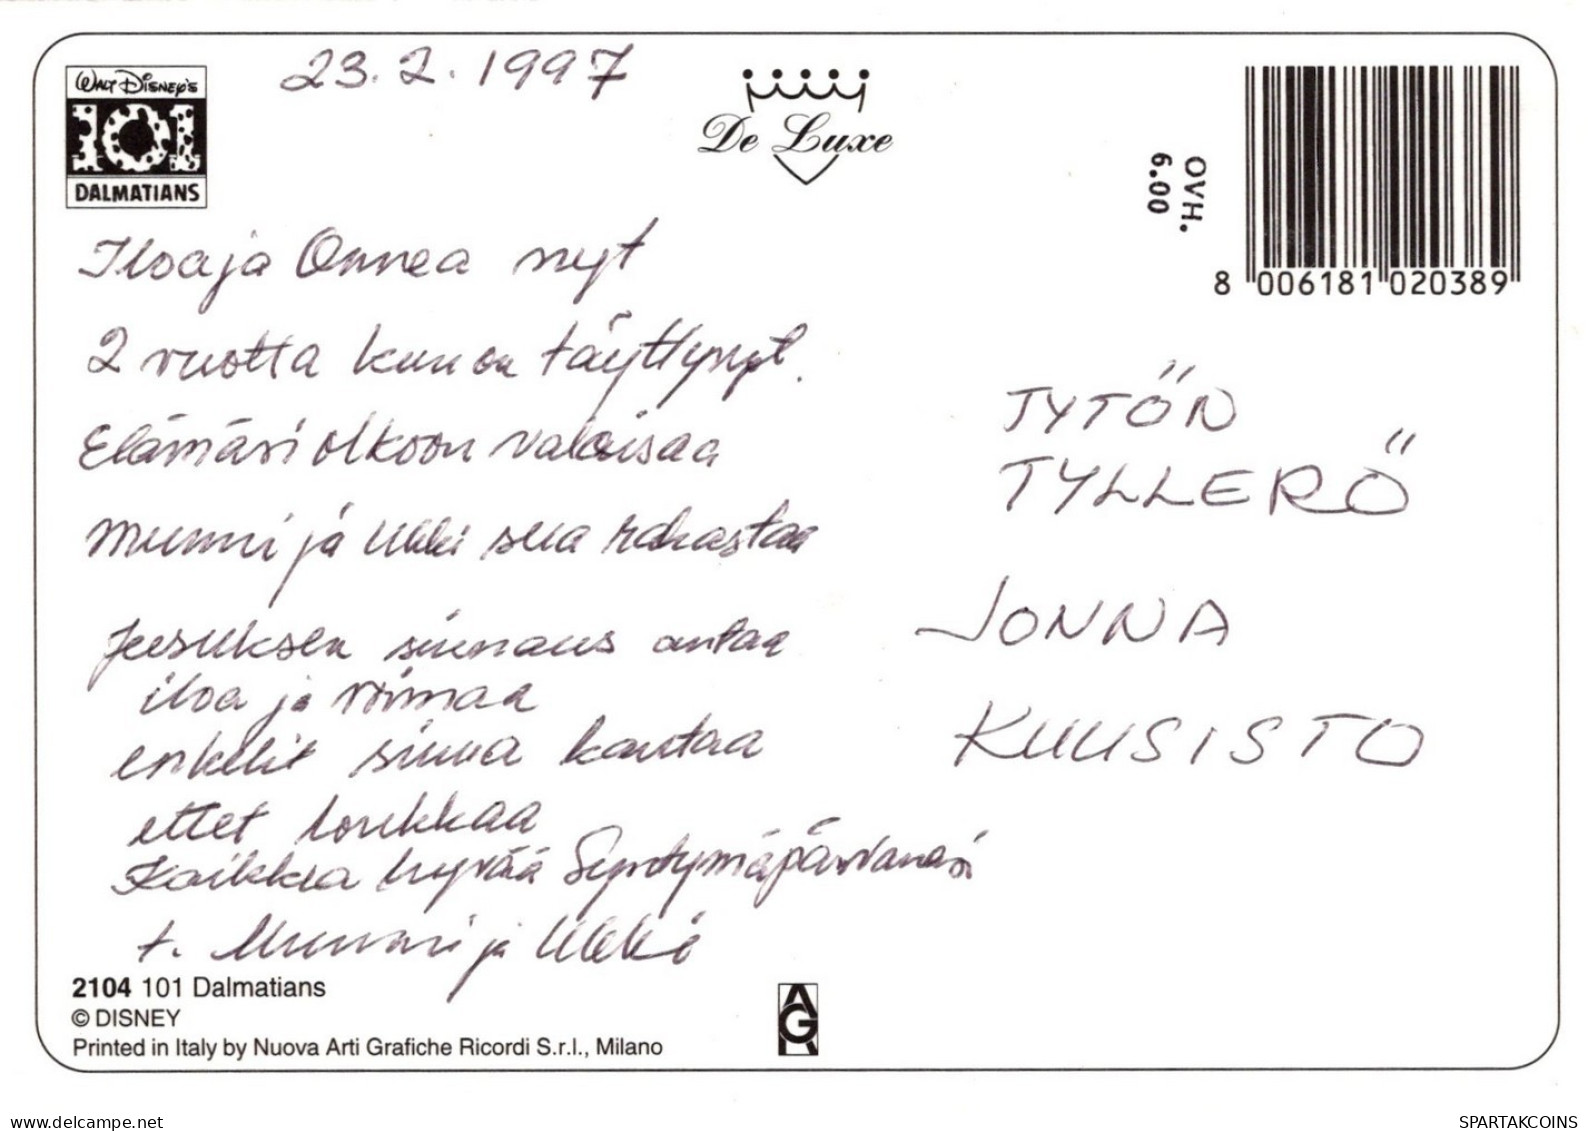 23.2.1997
WALT DISNEY'S
101
DALMATIANS
De Luxe
OVH.
6.00
8 006181 020389
Iloa ja Onnea nyt
2 vuotta kun on täyttynyt.
Elämäsi olkoon valoisaa
Mummi ja Ukki sua rakastaa
Jeesuksen siunaus antaa
iloa ja voimaa
enkelit sinua kantaa
ettet loukkaa
Kaikkea hyvää Syntymäpäivänäsi
t. Mummi ja Ukki
TYTÖN
TYLLERÖ
JONNA
KUUSISTO
2104 101 Dalmatians
© DISNEY
Printed in Italy by Nuova Arti Grafiche Ricordi S.r.l., Milano
AGR
www.delcampe.net
SPARTAKCOINS